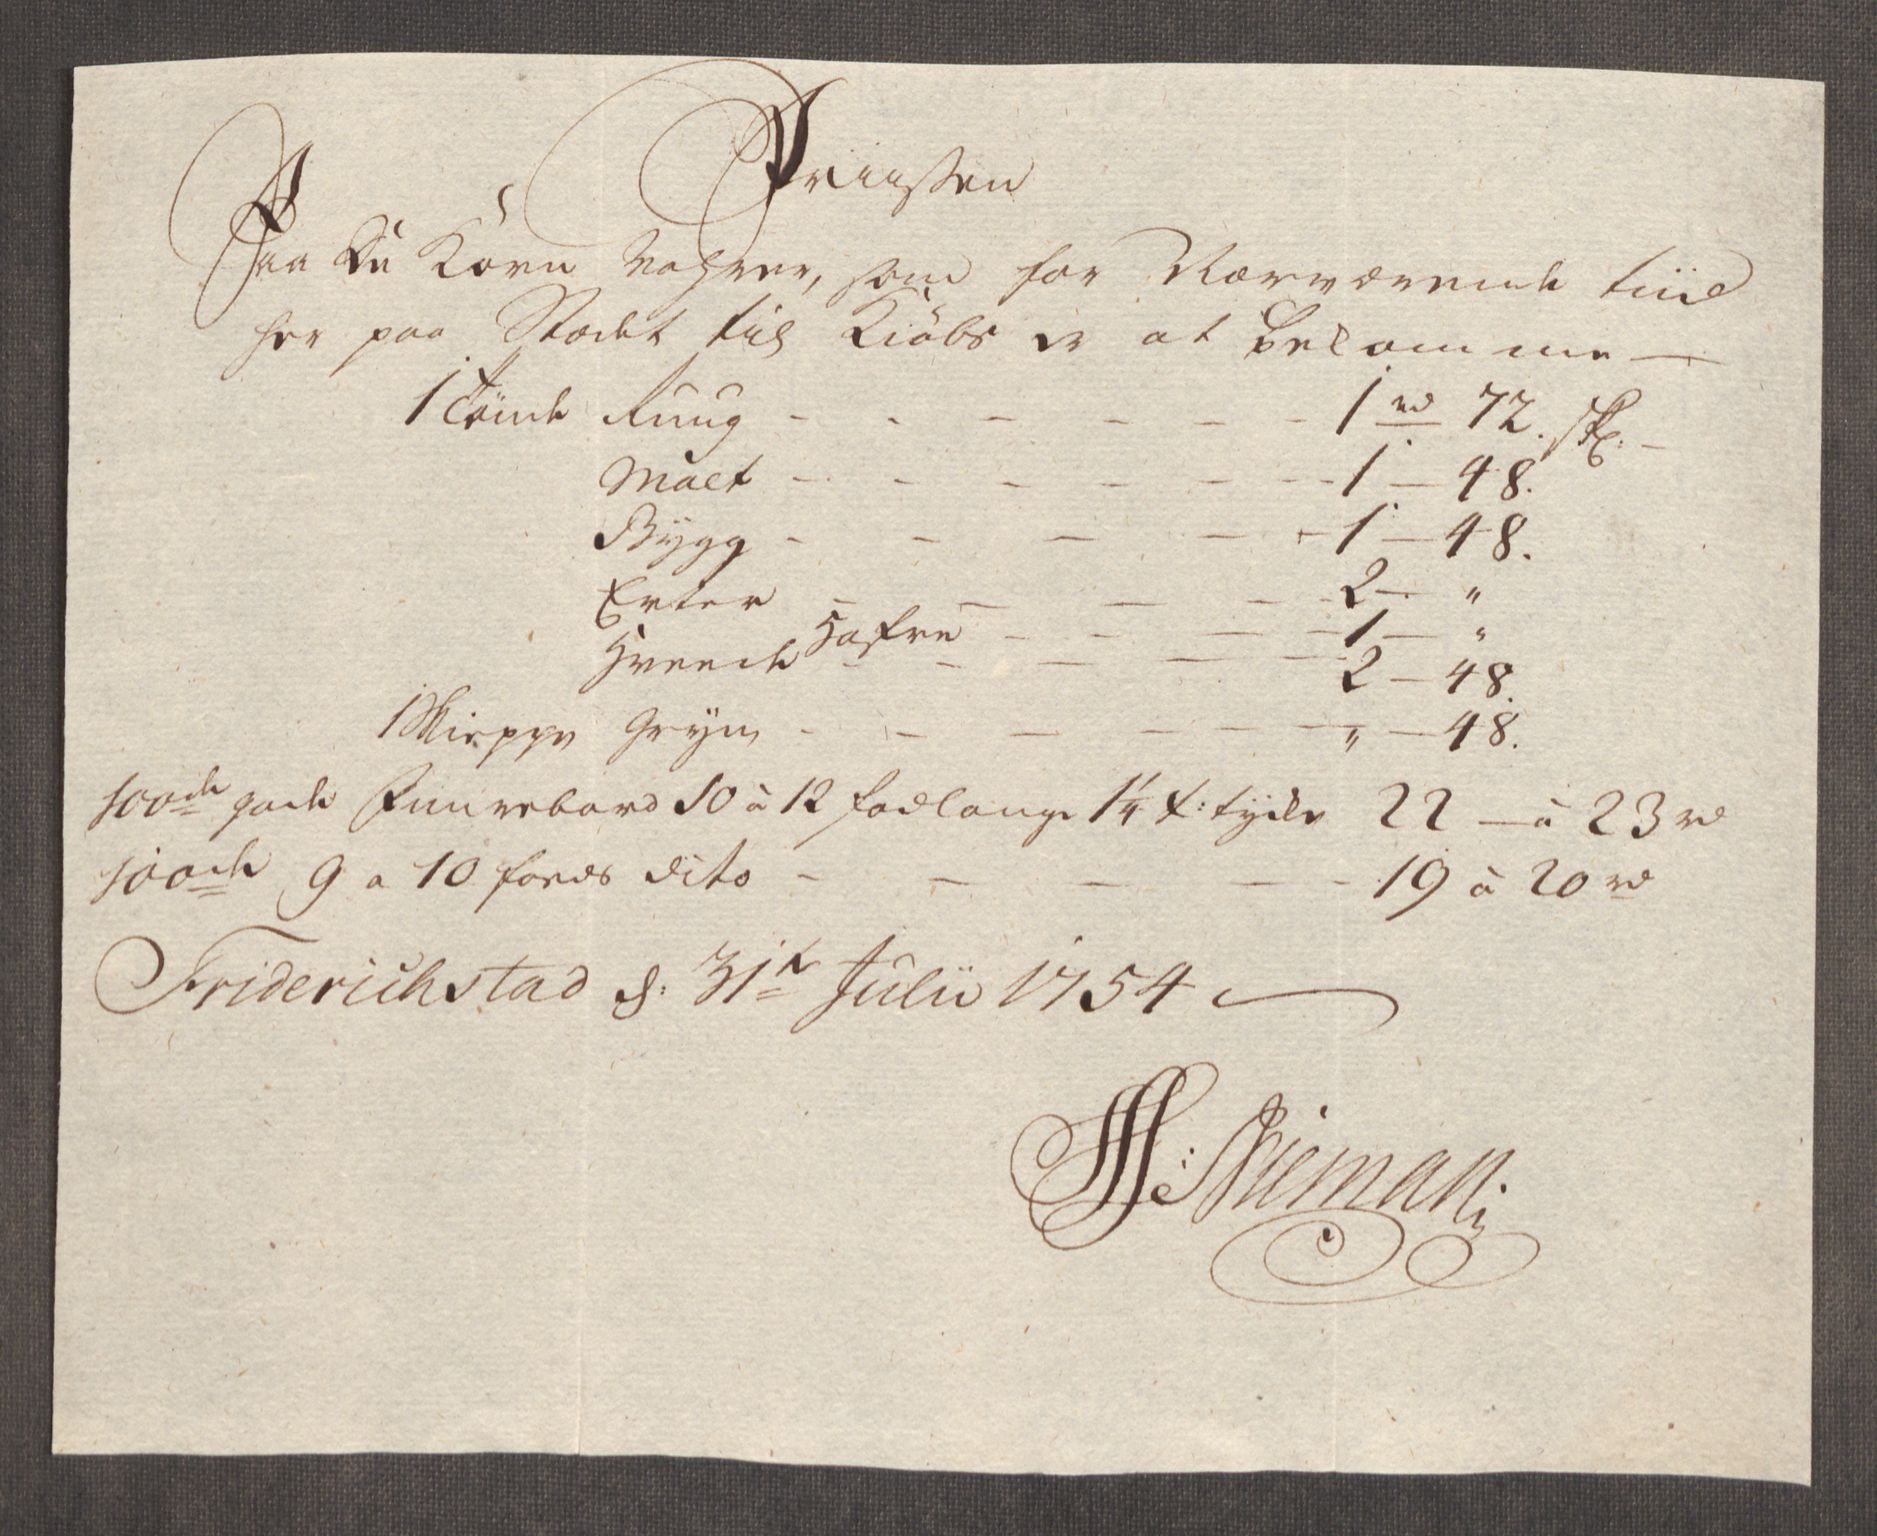 Priissen
Paa de Korn Vahrer, som for Nærværende tiid
her paa Stædet til Kiöbs er at bekomme
1 Tönde Ruug - - - - - - 1 rd 72. sk:
Malt - - - - - - 1 - 48.
Bygg - - - - - 1 - 48.
Erter - - - - - 2 - "
Hafre - - - - 1 - "
Hveede - - - - - 2 - 48.
1 Skieppe Gryn - - - - - " - 48.
100de gode Fuurebord 10 à 12 fod lange 1 1/4 t: tycke 22 - à 23 rd
100de 9 a 10 foeds dito - - - - - 19 à 20 rd
Friderichstad d: 31te Julii 1754
H: Nieman